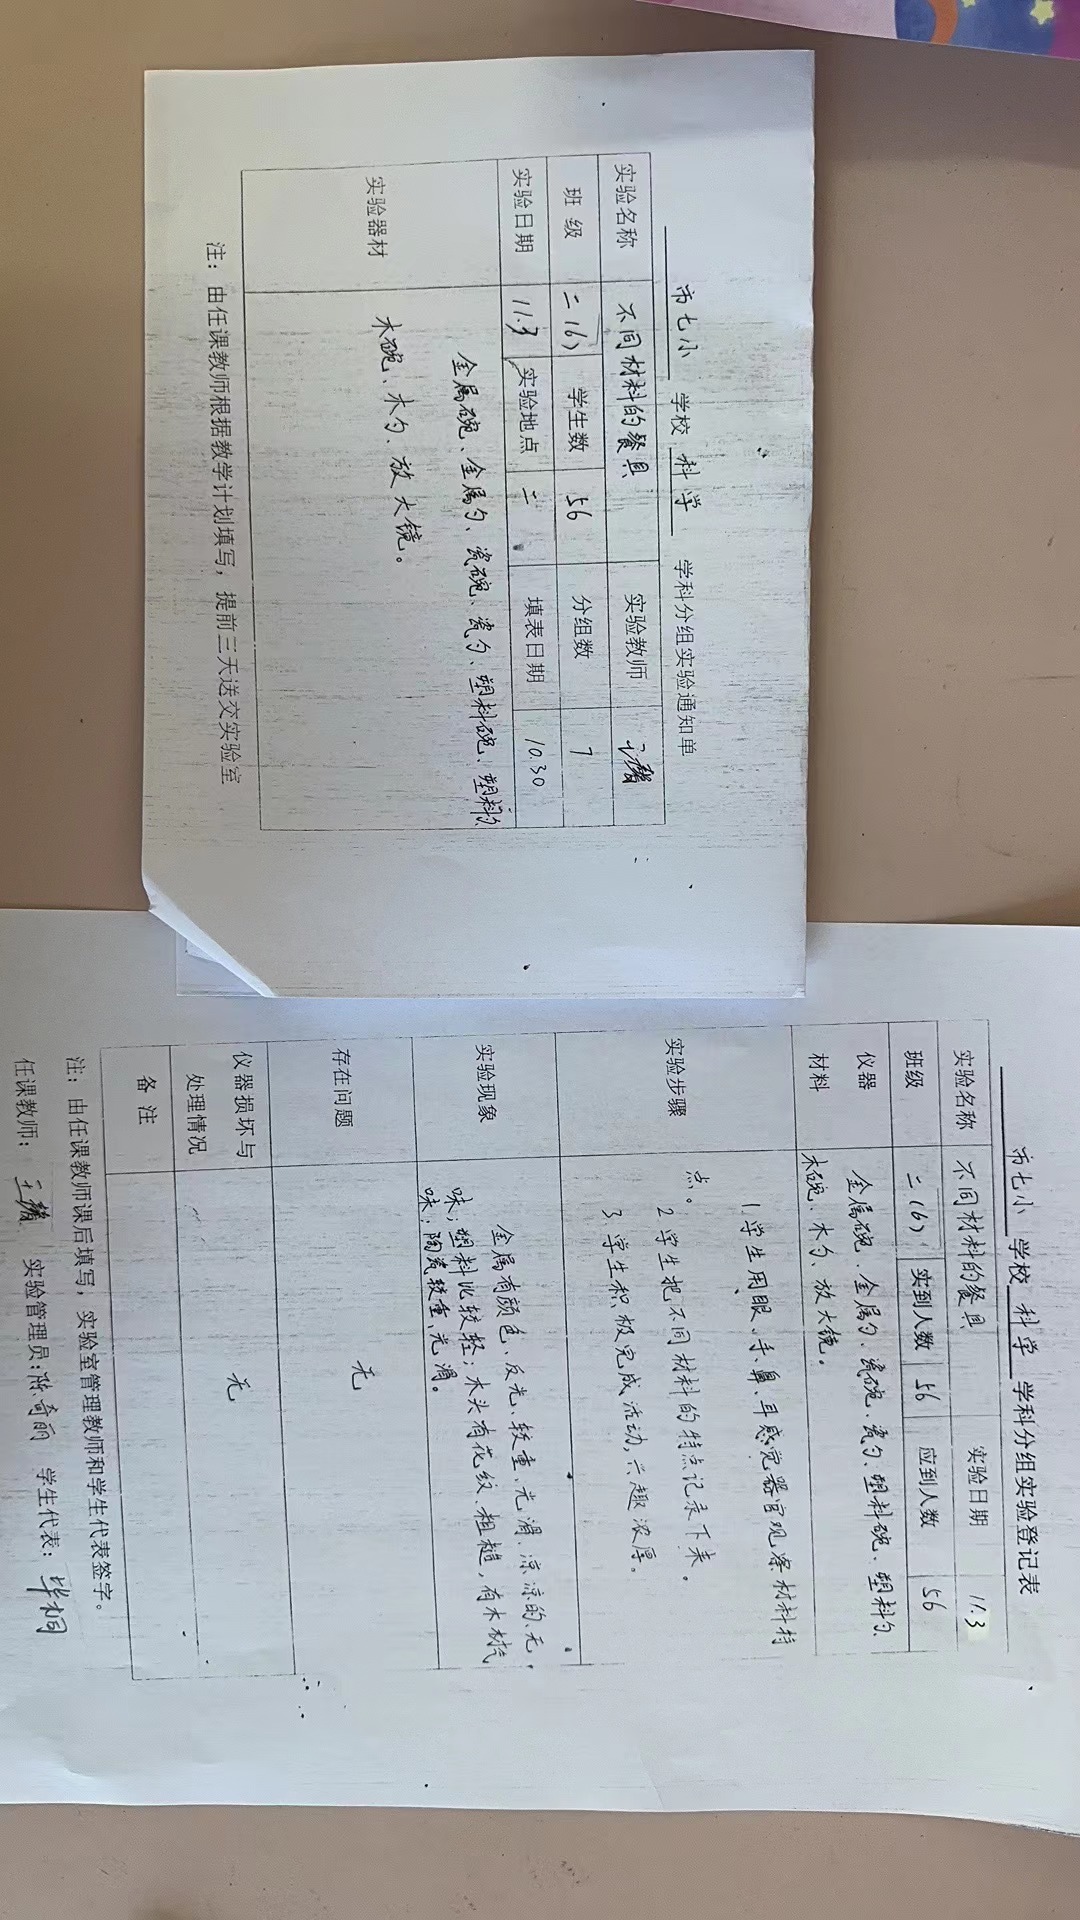 市七小 学校 科学 学科分组实验通知单
实验名称 不同材料的餐具 实验教师
班 级 二(6) 学生数 56 分组数 7
实验日期 11.3 实验地点 二 填表日期 10.30
实验器材 金属碗、金属勺、瓷碗、瓷勺、塑料碗、塑料勺
木碗、木勺、放大镜。
注：由任课教师根据教学计划填写，提前三天送交实验室
市七小 学校 科学 学科分组实验登记表
实验名称 不同材料的餐具 实验日期 11.3
班级 二(6) 实到人数 56 应到人数 56
仪器材料 金属碗、金属勺、瓷碗、瓷勺、塑料碗、塑料勺
木碗、木勺、放大镜。
实验步骤 1、学生用眼、手、鼻、耳感觉器官观察材料特
点。
2、学生把不同材料的特点记录下来。
3、学生积极完成活动，兴趣浓厚。
实验现象 金属有颜色、反光、较重、光滑、凉凉的、无
味；塑料比较轻；木头有花纹、粗糙，有木材气
味；陶瓷较重、光滑。
存在问题 无
仪器损坏与处理情况 无
备 注
注：由任课教师课后填写，实验室管理教师和学生代表签字。
任课教师： 王 实验管理员：陈奇丽 学生代表：毕桐